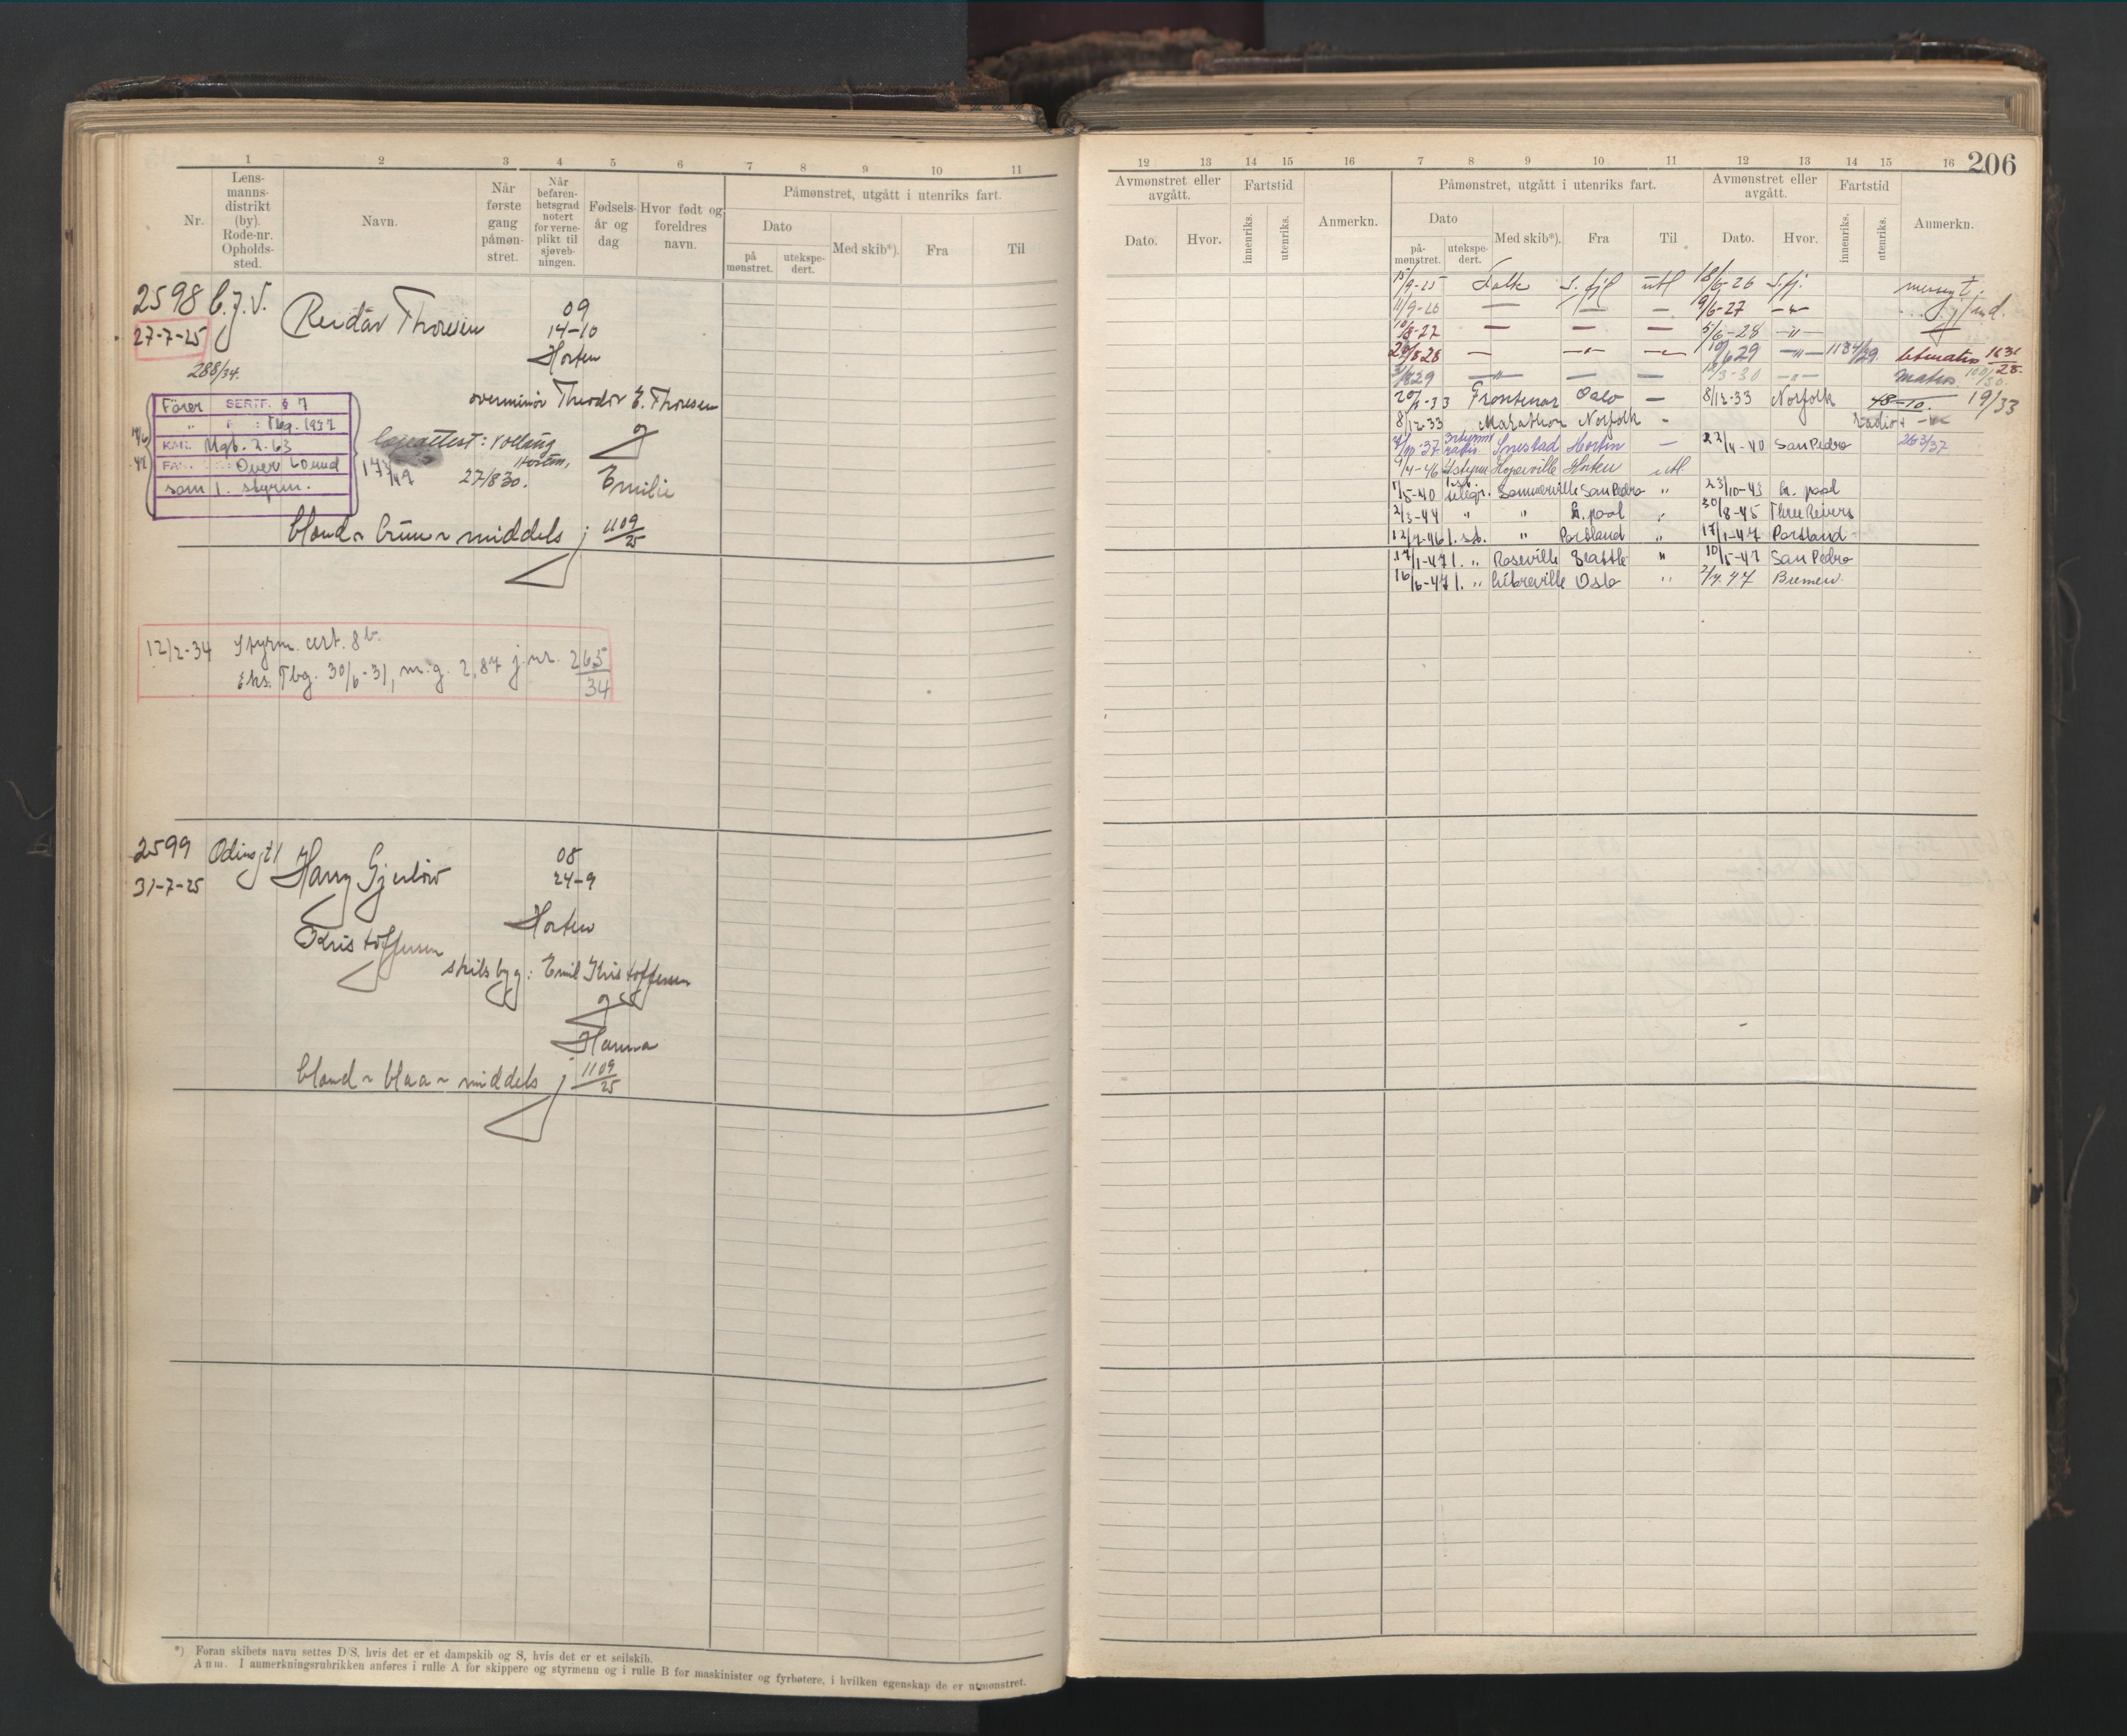 1 2 3 4 5 6 7 8 9 10 11
Nr.
Lens-
manns-
distrikt
(by).
Rode-nr.
Opholds-
sted.
Navn.
Når
første
gang
påmøn-
stret.
Når
befaren-
hetsgrad
notert
for verne-
plikt til
sjøveb-
ningen.
Fødsels-
år og
dag
Hvor født og
foreldres
navn.
Påmønstret, utgått i utenriks fart.
Dato
på
mønstret.
utekspe-
dert.
Med skib*).
Fra
Til
2598 C.J.V. Reidar Thoresen 09
27-7-25 14-10
Horten
288/34.
overminör Theodor E. Thoresen
og
Emilie
Förer SERTF. § 7
" : Tbg. 1937
Mgb. 2.63
Over 60 mnd
som 1. styrm.
27/8 30. Horten.
blond ~ brun ~ middels j 1109/25
12/2-34 Styrm. cert. 8 b.
Eks. Tbg. 30/6-31, m.g. 2,87 j.nr. 265/34
2599 Odinsgt 1 Harry Gjerlöw 08
31-7-25 24-9
Kristoffersen Horten
skibsbyg: Emil Kristoffersen
og
Hanna
blond ~ blaa ~ middels j 1109/25
*) Foran skibets navn settes D/S, hvis det er et dampskib og S, hvis det er et seilskib.
Anm. I anmerkningsrubrikken anføres i rulle A for skippere og styrmenn og i rulle B for maskinister og fyrbøtere, i hvilken egenskap de er utmønstret.
12 13 14 15 16 7 8 9 10 11 12 13 14 15 16 206
Avmønstret eller
avgått.
Dato.
Hvor.
Fartstid
innenriks.
utenriks.
Anmerkn.
Påmønstret, utgått i utenriks fart.
Dato
på-
mønstret.
utekspe-
dert.
Med skib*).
Fra
Til
Avmønstret eller
avgått.
Dato.
Hvor.
Fartstid
innenriks.
utenriks.
Anmerkn.
15/9-25 Falk S. fjl utl 18/6-26 S.fj.
11/9-26 — — — 9/6-27 —"—
10/8-27 — — — 5/6-28 —"—
— —"— — 10/6 29 —"— 1134/29. letmatros 1631/28.
3/8 29 —"— — — 12/3-30 —"— matros 100/30.
Frontenac Oslo — 8/12-33 Norfolk 48-10. 19/33
8/12 33 Marathon Norfolk -
Snestad Horten — 22/4-40 San Pedro 263/37
9/4-46 Hopeville Horten utl
1/5-40 telegr. Sommerville San Pedro " 23/10-43 L. pool
2/3-44 " " L. pool " 30/8-45 Three Rivers
12/7-46 1. st. " Portland " 17/1-47 Portland
17/1-47 1. " Roseville Seattle " 10/5-47 San Pedro
16/6-47 1. " Libreville Oslo " 2/7.47 Bremen.